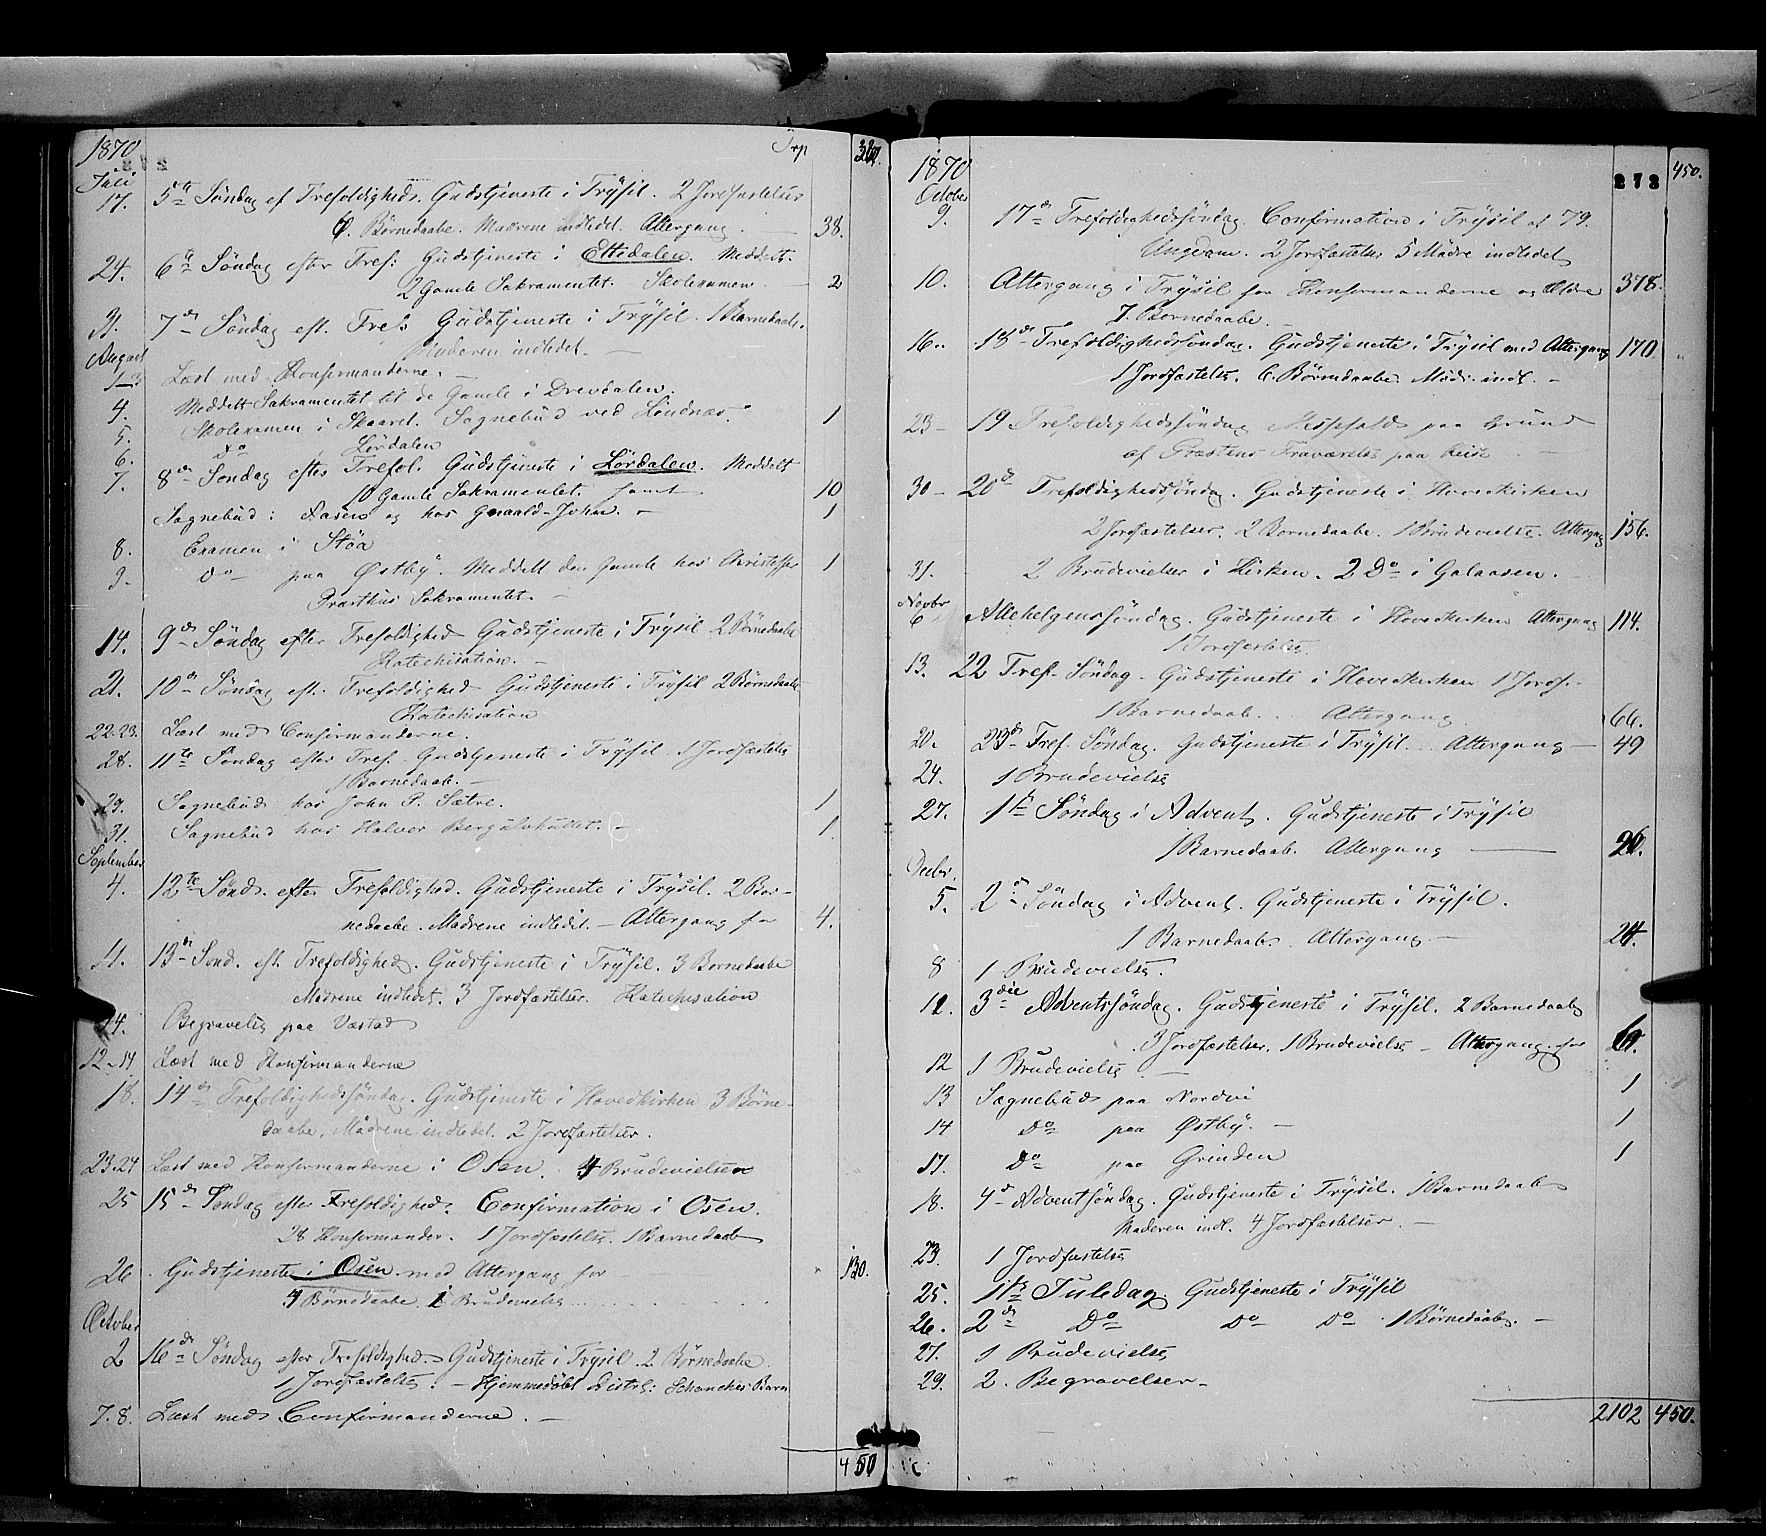 1870 Trp 320.
Juli
17. 5te Søndag ef Trefoldigheds. Gudstjeneste i Trysil. 2 Jordfæstelser
6. Børnedaabe. Mødrene indledet. Altergang. 38.
24. 6te Søndag efter Tref: Gudstjeneste i Eltedalen. Meddelt.
2 Gamle Sakramentet. Skolexamen. — 2
31. 7de Søndag eft. Tref: Gudstjeneste i Trysil. 1 Barnedaab.
Moderen indledet. —
August
1-3 Læst med Konfirmanderne. —
4. Meddelt Sakramentet til de Gamle i Drevdalen.
5. Skolexamen i Skaaret. Sognebud ved Lindnæs. 1
6. do Lørdalen
7. 8de Søndag efter Trefol. Gudstjeneste i Lørdalen. Meddelt
10 Gamle Sakramentet. samt 10
Sognebud: Aasen og hos Graald-John. — 1
8. Examen i Støa
9. do paa Østby. Meddelt den Gamle hos Christoffer 1
Præsthus Sakramentet. —
14. 9de Søndag efter Trefoldighed Gudstjeneste i Trysil 2 Børnedaabe
Katechisation. —
21. 10de Søndag eft. Trefoldighed Gudstjeneste i Trysil 2 Børnedaabe
Katechisation
22-23. Læst med Confirmanderne.
28. 11te Søndag efter Tref. Gudstjeneste i Trysil. 1 Jordfæstelse
1 Barnedaab. —
29. Sognebud hos John P. Sætre. 1
31. Sognebud hos Halvor Bergulvhullet. — 1.
September
4. 12te Sønd. efter Trefoldighed. Gudstjeneste i Trysil. 2 Bør-
nedaabe. Mødrene indledet. — Altergang for 4.
11. 13de Sønd. eft. Trefoldighed. Gudstjeneste i Trysil. 3 Børnedaabe
Mødrene indledet. 3 Jordfæstelser. Katechisation
14. Begravelse paa Væstad
12-14 Læst med Konfirmanderne
18. 14de Trefoldighedssøndag. Gudstjeneste i Hovedkirken 3 Børne-
daabe, Mødrene indledet. 2 Jordfæstelser.
23-24 Læst med Konfirmanderne i Osen. 4 Brudevielser
25 15de Søndag efter Trefoldighed. Confirmation i Osen.
28 Konfirmander. 1 Jordfæstelse. 1 Barnedaab
26. Gudstjeneste i Osen med Altergang for 130.
4 Børnedaabe. 1 Brudevielse
October
2 16de Søndag efter Trefoldighed. Gudstjeneste i Trysil. 2 Børnedaabe.
1 Jordfæstelse: — Hjemmedøbt Distrl: Schanches Barn
7. 8. Læst med Confirmanderne. —
450
1870 272 450.
October
9. 17de Trefoldighedssøndag. Confirmation i Trysil af 79.
Ungdom. 2 Jordfæstelser 5 Mødre indledet
10. Altergang i Trysil for Konfirmanderne og Ældre 378.
7. Børnedaabe.
16. 18de Trefoldighedssøndag. Gudstjeneste i Trysil med Altergang 170
1 Jordfæstelse. 6. Børnedaabe. Mødr. indl. —
23 — 19 Trefoldighedssøndag Messefald paa Grund
af Præstens Fraværelse paa Reise
30 — 20de Trefoldighedssøndag. Gudstjeneste i Hovedkirken
2 Jordfæstelser. 2 Børnedaabe. 1 Brudevielse. Altergang 156.
31. 2 Brudevielser i Kirken. 2 Do i Galaasen.
Novbr
6 Allehelgenssøndag. Gudstjeneste i Hovedkirken Altergang 114.
1 Jordfæstelse.
13. 22 Tref. Søndag. Gudstjeneste i Hovedkirken 1 Jordf.
1 Barnedaab. Altergang. 66.
20. 23de Tref. Søndag. Gudstjeneste i Trysil. Altergang — 49
24. 1 Brudevielse
27. 1ste Søndag i Advent. Gudstjeneste i Trysil
1 Barnedaab. Altergang 26.
Decbr.
5. 2den Søndag i Advent. Gudstjeneste i Trysil.
1 Barnedaab. Altergang. 24.
8 1 Brudevielse.
11. 3die Adventssøndag. Gudstjeneste i Trysil. 2 Barnedaab
3 Jordfæstelser. 1 Brudevielse — Altergang. for
12 1 Brudevielse
13 Sognebud paa Nordvi 1
14 Do paa Østby. — 1
17. Do paa Grinden 1
18. 4de Adventsøndag. Gudstjeneste i Trysil. 1 Barnedaab
Moderen indl. 4 Jordfæstelser. —
23. 1 Jordfæstelse
25. 1ste Juledag. Gudstjeneste i Trysil
26. 2den Do Do Do 1 Børnedaab. —
27. 1 Brudevielse
29. 2. Begravelser —
2102 450.